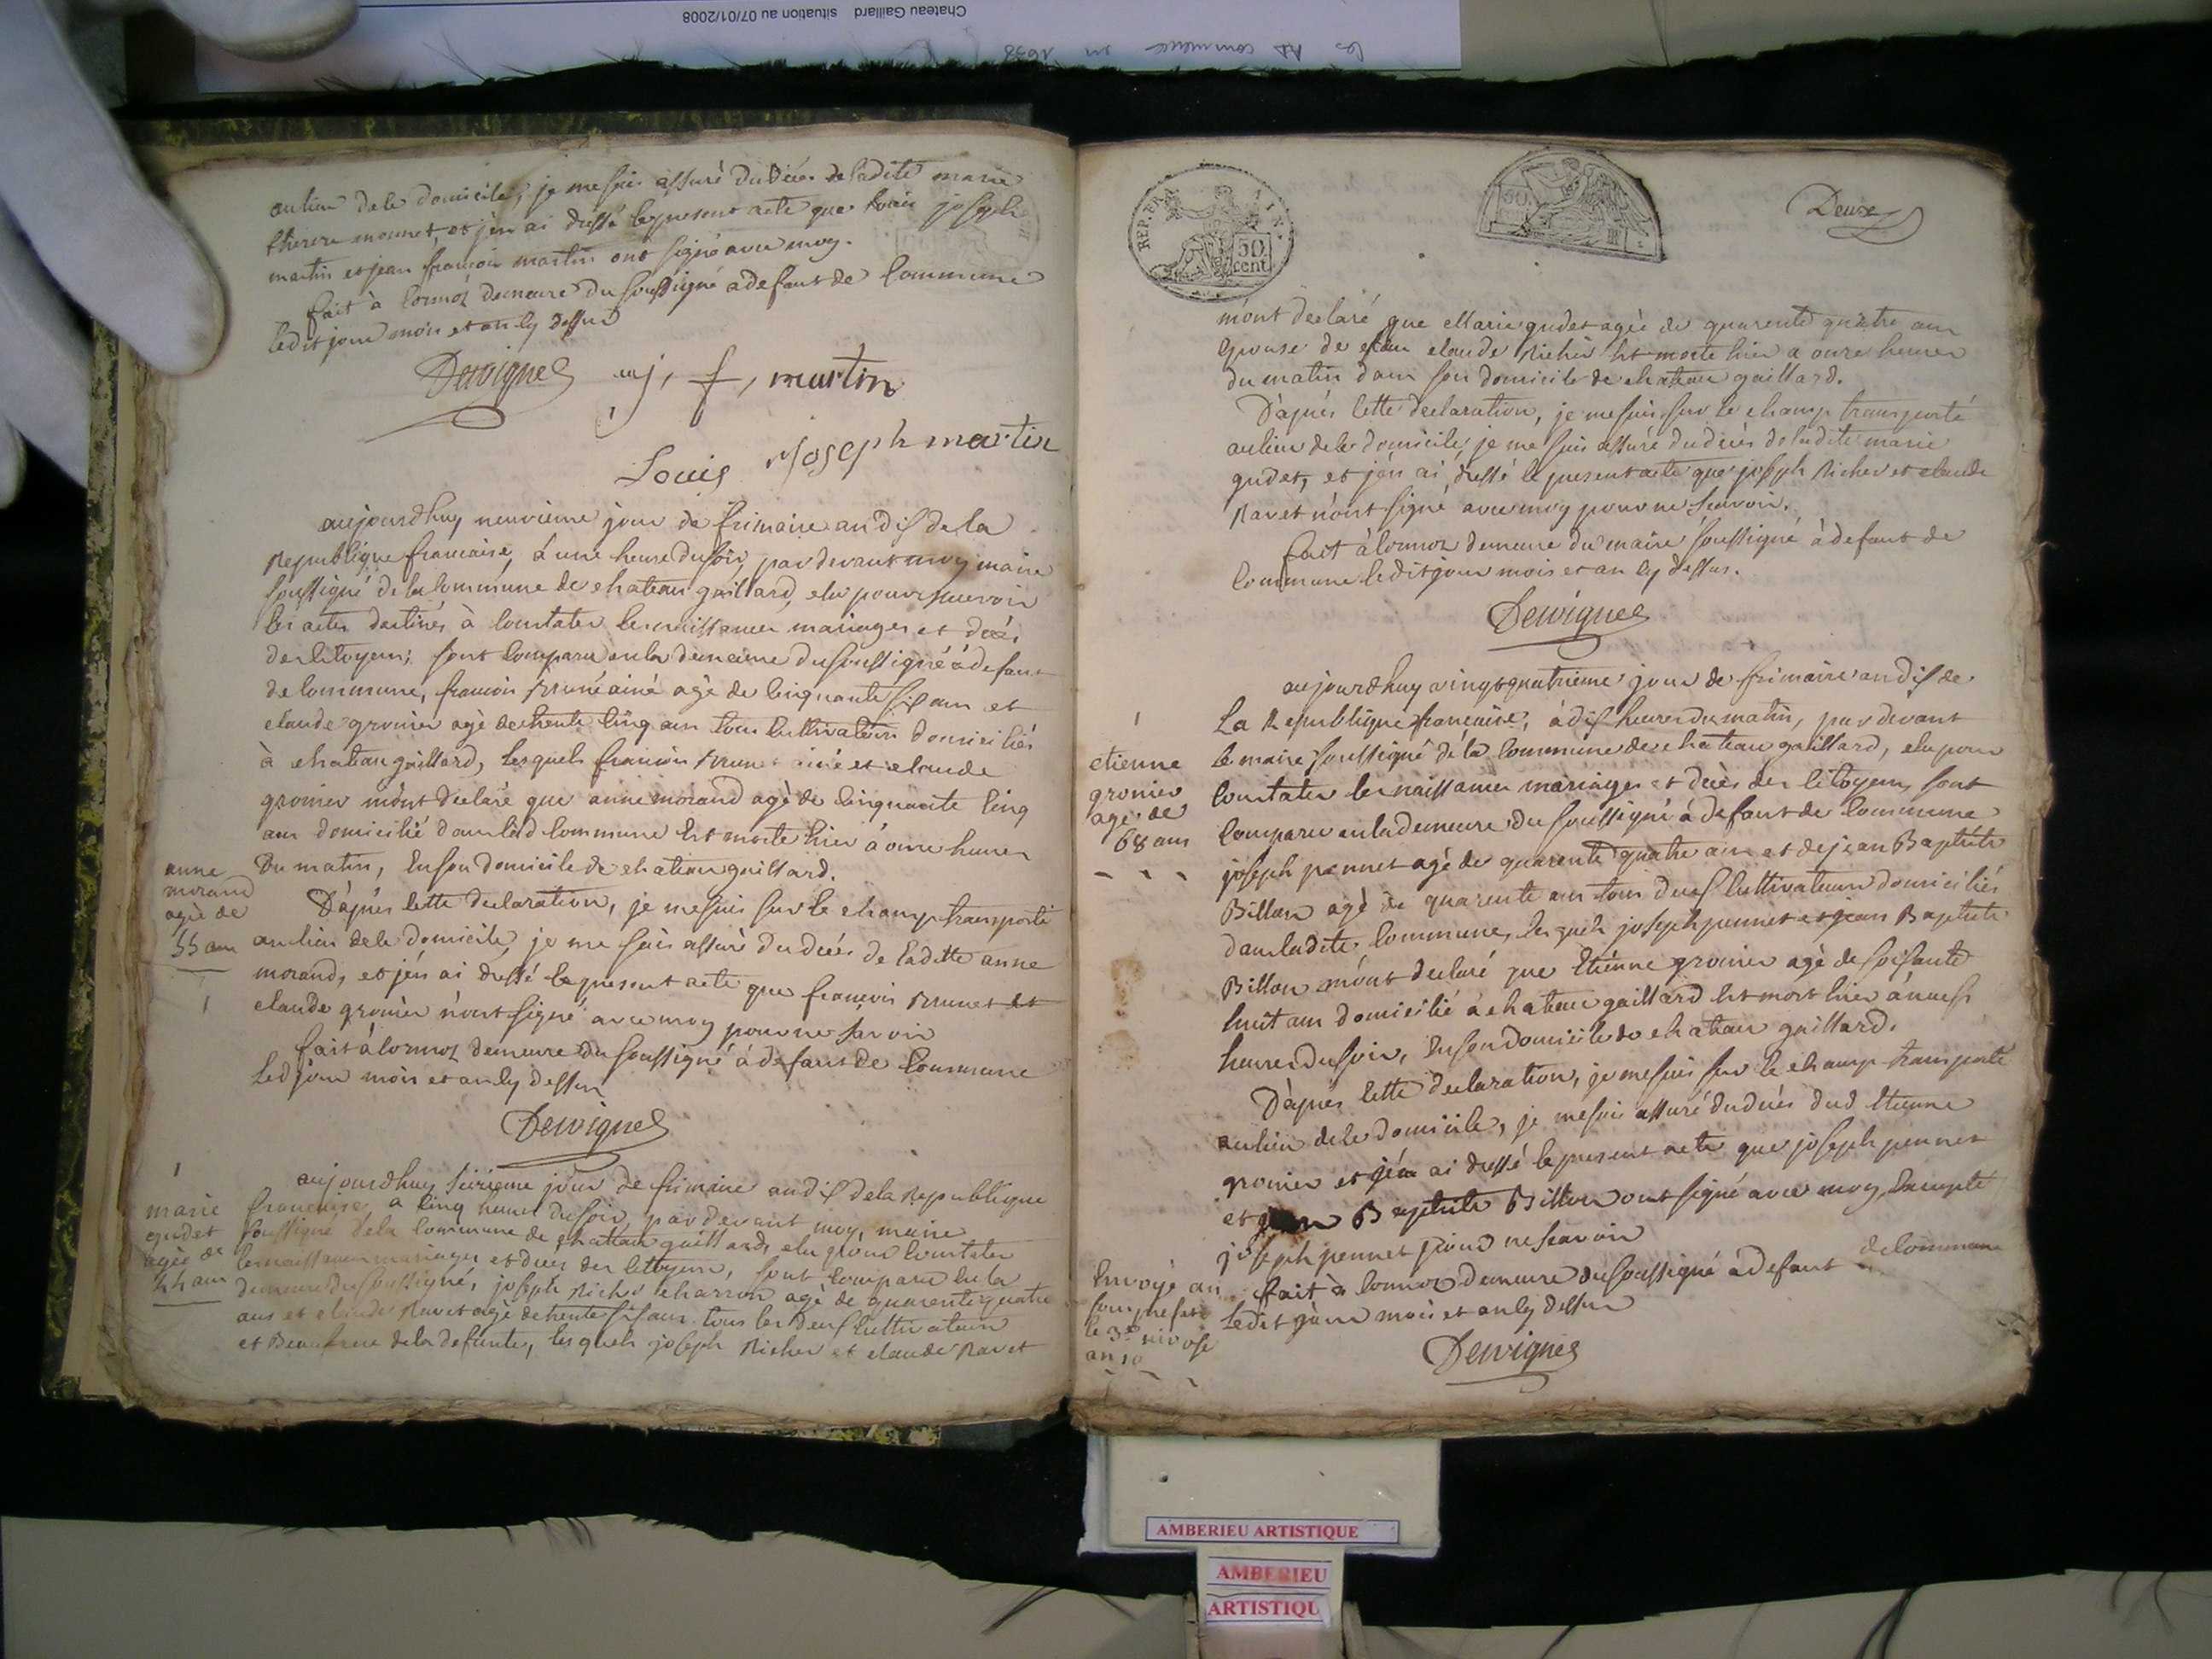 Chateau Gaillard situation au 07/01/2008
les commence en 1638
au lieu de le domicile, je me suis assuré du décés de ladite marie
therese monnet et j'en ai dressé le present acte que louis joseph
martin et jean françois martin ont signé avec moy.
fait à Cormoz demeure du soussigné a defaut de commune
ledit jour mois et an cy dessus
Dervignes j, f, martin
Louis Joseph martin
aujourdhuy neuvieme jour de frimaire an dis de la
Republique francaise, à une heure du soir, par devant moy maire
soussigné de la commune de chateau gaillard, elu pour recevoir
les actes destinés à constater les naissances mariages et decés
des citoyens; sont comparu en la demeure du soussigné à defaut
de commune, francois Bruné ainé agé de cinquante sis ans et
claude gronier agé de trente cinq ans tous cultivateurs domiciliés
à chateau gaillard, lesquels francois Brunet ainé et claude
gronier m'ont declaré que anne morand agé de cinquante cinq
ans domicilié dans lad commune est morte hier à onze heures
du matin, en son domicile de chateau gaillard.
anne
morand
agée de
55 ans
D'aprés cette declaration, je me suis sur le champ transporté
au lieu de le domicile, je me suis assuré du decés de ladite anne
morand, et j'en ai dressé le present acte que françois Brunet et
claude gronier n'ont signé avec moy pour ne savoir
fait à Cormoz demeure du soussigné à defaut de commune
led jour mois et an cy dessus
Dervignes
aujourdhuy seizieme jour de frimaire an dis de la Republique
francaise, a cinq heures du soir, par devant moy, maire
soussigné de la commune de chateau gaillard, elu pour constater
les naissances mariages et deces des citoyens, sont comparu en la
demeure du soussigné, joseph Richer charron agé de quarente quatre
ans et claude Ravet agé de trente sis ans tous les deus cultivateurs
et Beaufrere de la defunte, lesquels joseph Richer et claude Ravet
marie
gudet
agée de
44 ans
REP. FRA
50 cent
50
Deuxe
m'ont declaré que Marie gudet agée de quarente quatre ans
epouse de claude Richer est morte hier a onze heures
du matin dans son domicile de chateau gaillard.
D'aprés cette declaration, je me suis sur le champ transporté
au lieu de le domicile, je me suis assuré du decés de ladite marie
gudet, et j'en ai dressé le present acte que joseph Richer et claude
Ravet n'ont signé avec moy pour ne scavoir.
fait à Cormoz demeure du maire soussigné à defaut de
commune ledit jour mois et an cy dessus.
Dervignes
aujourdhuy vingt quatrieme jour de frimaire an dis de
La Republique francaise, à dis heures du matin, par devant
le maire soussigné de la commune de chateau gaillard, elu pour
constater les naissances mariages et décès des citoyens, sont
comparu en la demeure du soussigné à defaut de commune
joseph pennet agé de quarente quatre ans et de jean Baptiste
Billon agé de quarente ans tous deus cultivateurs domiciliés
dans ladite commune, lesquels joseph pennet et jean Baptiste
Billon m'ont declaré que Etiénne gronier agé de soisante
huit ans domicilié à chateau gaillard est mort hier à neuf
heures du soir, en son domicile de chateau gaillard.
etienne
gronier
agé de
68 ans
D'aprés cette declaration, je me suis sur le champ transporté
au lieu de le domicile, je me suis assuré du decés dud Etienne
gronier et j'en ai dressé le present acte que joseph pennet
et jean Baptiste Billon ont signé avec moy, excepté
joseph pennet pour ne scavoir
fait à Cormoz demeure du soussigné à defaut de commune
ledit jour mois et an cy dessus
Dervignes
Envoyé au
souprefet
le 3e nivose
an 10
AMBERIEU ARTISTIQUE
AMBERIEU
ARTISTIQU